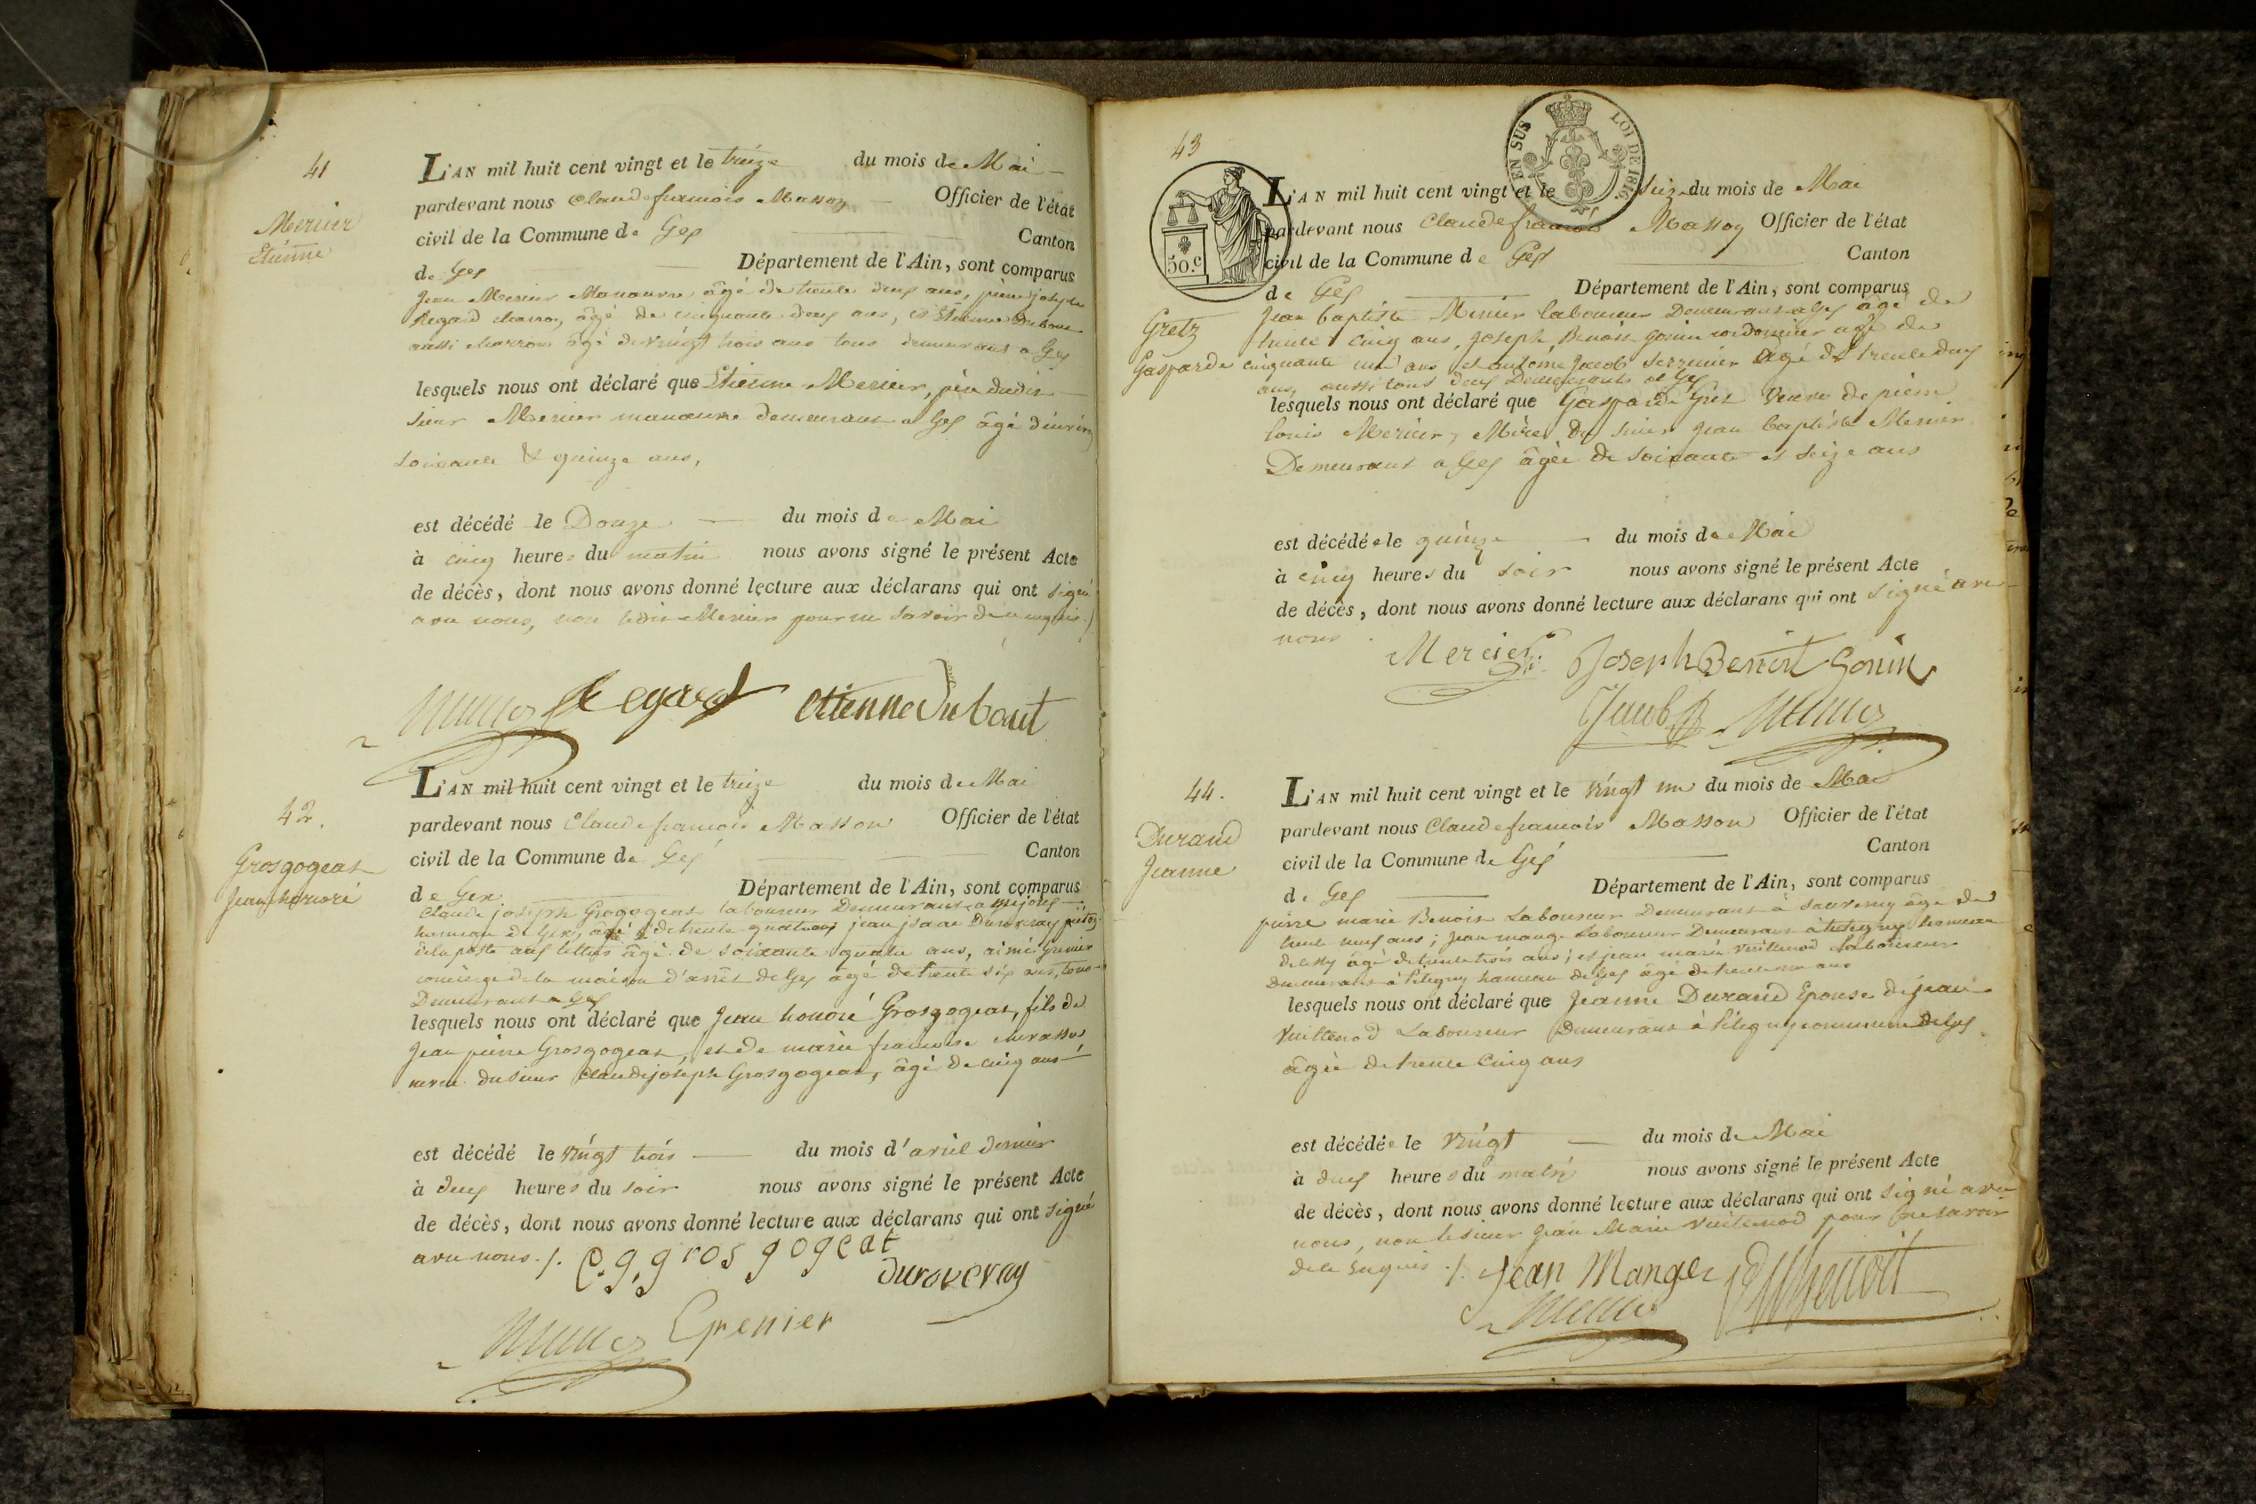 41
Mercier
Etienne
L'AN mil huit cent vingt et le treize du mois de Mai
pardevant nous Claude francois Masson Officier de l'état
civil de la Commune de Gex Canton
de Gex Département de l'Ain, sont comparus
Jean Mercier Manœuvre âgé de trente deux ans, pierre joseph
Regard charron, âgé de cinquante deux ans, et Etienne Dubout
aussi charron âgé de vingt trois ans tous demeurant a Gex
lesquels nous ont déclaré que Etienne Mercier, père dudit
sieur Mercier manœuvre demeurant a Gex âgé d'environ
soixante & quinze ans,
est décédé le Douze du mois de Mai
à cinq heures du matin nous avons signé le présent Acte
de décès, dont nous avons donné lecture aux déclarans qui ont signé
avec nous, non ledit Mercier pour ne savoir de ce enquis ./.
Masson Regard etienne Dubout
42.
Grosgogeat
Jean honoré
L'AN mil huit cent vingt et le treize du mois de Mai
pardevant nous Claude francois Masson Officier de l'état
civil de la Commune de Gex Canton
de Gex Département de l'Ain, sont comparus
Claude joseph Grosgogeat laboureur Demeurant a
hameau de Gex, âgé de trente quatre ans jean isaac Duroveray
de la poste aux lettres âgé de soixante quatre ans, aimé Grenier
concierge de la maison d'arrêt de Gex âgé de trente six ans, tous
Demeurant a Gex
lesquels nous ont déclaré que Jean honoré Grosgogeat, fils de
Jean pierre Grosgogeat, et de marie francoise
neveu du sieur Claude joseph Grosgogeat, âgé de cinq ans
est décédé le vingt trois du mois d'avril dernier
à deux heures du soir nous avons signé le présent Acte
de décès, dont nous avons donné lecture aux déclarans qui ont signé
avec nous ./. C. g, gros gogeat
duroveray
Masson Grenier
43
EN SUS LOI DE 1816.
50.c
Gretz
Gasparde
L'AN mil huit cent vingt et le seize du mois de Mai
pardevant nous Claude francois Masson Officier de l'état
civil de la Commune de Gex Canton
de Gex Département de l'Ain, sont comparus
Jean baptiste Mercier laboureur Demeurant a Gex âgé de
trente cinq ans, Joseph Benoit Gonin cordonnier âgé de
cinquante un ans et antoine Jacob serrurier âgé de trente deux
ans, aussi tous deux Demeurants a Gex
lesquels nous ont déclaré que Gasparde Gretz Veuve de pierre
louis Mercier, Mère du sieur Jean baptiste Mercier
Demeurant a Gex âgée de soixante et seize ans
est décédée le quinze du mois de Mai
à cinq heures du soir nous avons signé le présent Acte
de décès, dont nous avons donné lecture aux déclarans qui ont signé avec
nous
Mercier Joseph Benoit Gonin
Jacob Masson
44.
Durand
Jeanne
L'AN mil huit cent vingt et le vingt un du mois de Mai
pardevant nous Claude francois Masson Officier de l'état
civil de la Commune de Gex Canton
de Gex Département de l'Ain, sont comparus
pierre marie Benoit Laboureur Demeurant à sauverny âgé de
trente neuf ans; Jean mange Laboureur Demeurant à hameau
âgé de trente trois ans; et jean marie Vuillemod Laboureur
Demeurant à Pitegny hameau de Gex âgé de trente un ans
lesquels nous ont déclaré que Jeanne Durand Epouse de jean
Vuillemod Laboureur Demeurant à Pitegny commune de Gex
âgée de trente cinq ans
est décédée le vingt du mois de Mai
à deux heures du matin nous avons signé le présent Acte
de décès, dont nous avons donné lecture aux déclarans qui ont signé avec
nous, non le sieur Jean Marie Vuillemod pour ne savoir
de ce enquis ./. Jean Mange Benoit
Masson